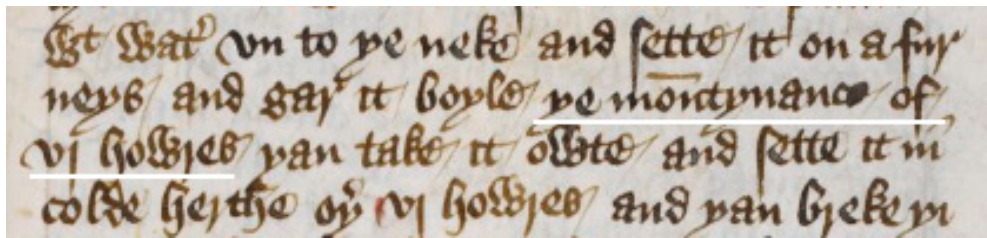 wt wat' vn to ye neke and sette it on a fur
neys and gar it boyle ye montynance of
vj howres yan take it owte and sette it in
colde herthe oy' vj howres and yan breke yi